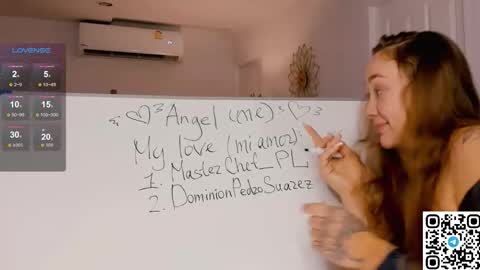 LOVENSE
2s 5s
2~9 10~49
10s 15s
50~99 100~300
30s 20s
Angel (me)
My love (mi amor):
1. MasterChef_PL
2. DominionPedroSuarez